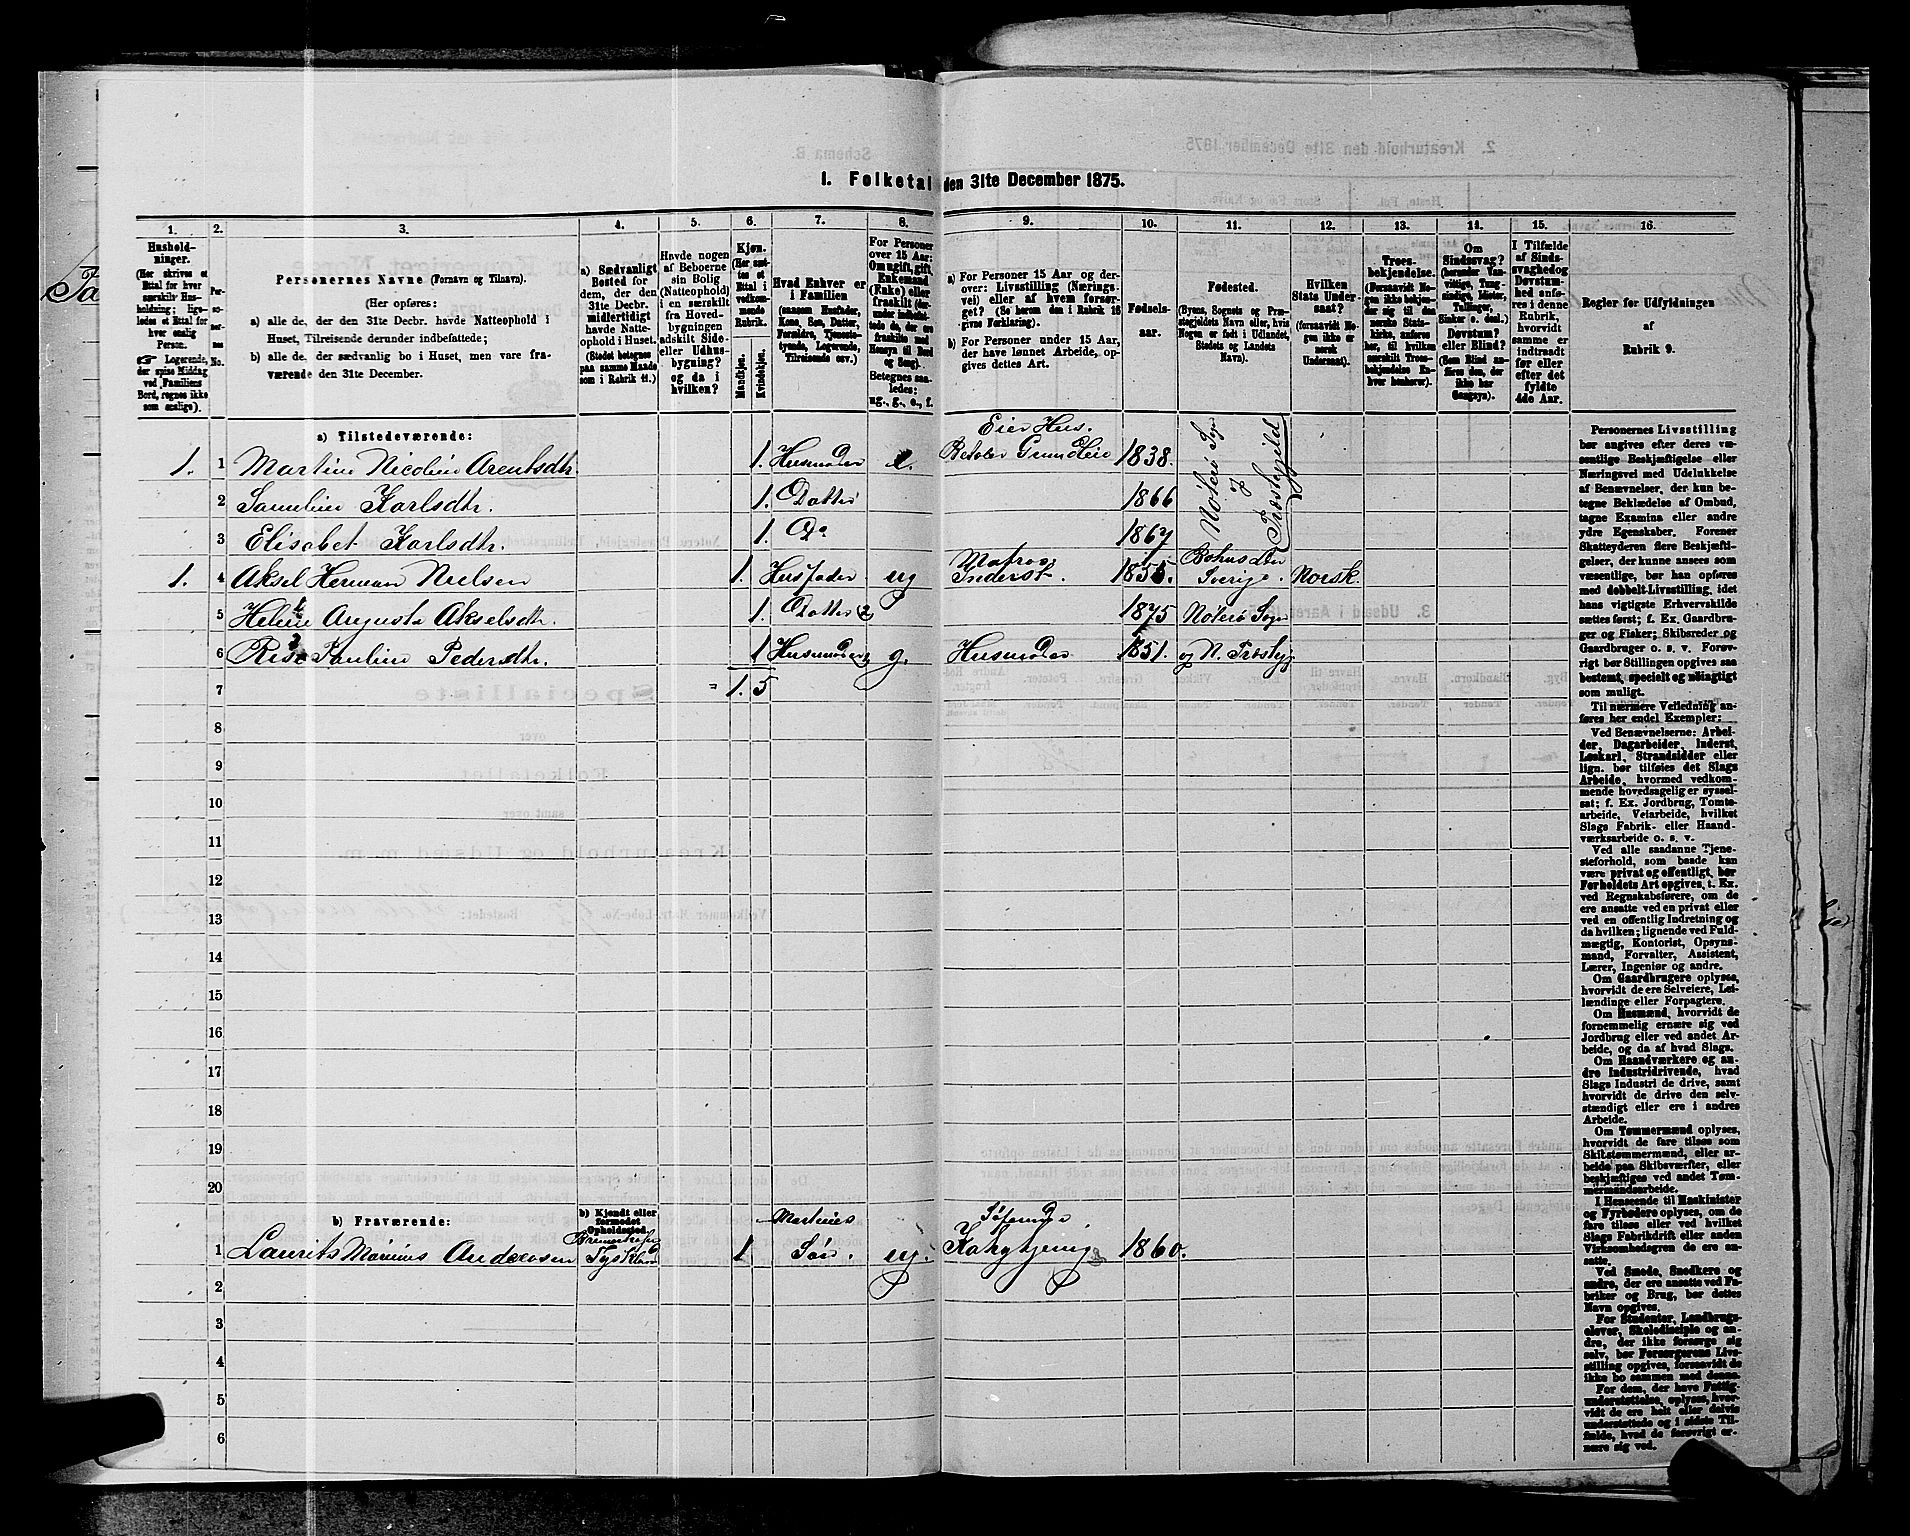 1. Folketal den 31te December 1875.
1. 2. 3. 4. 5. 6. 7. 8. 9. 10. 11. 12. 13. 14. 15. 16.
Hushold-
ninger.
(Her skrives et
Ettal for hver
særskilt Hus-
holdning; lige-
ledes et Ettal for
hver enslig
Person.
☞ Logerende,
der spise Middag
ved Familiens
Bord, regnes ikke
som enslige).
Per-
so-
ner-
nes
No.
Personernes Navne (Fornavn og Tilnavn).
(Her opføres:
a) alle de, der den 31te Decbr. havde Natteophold i
Huset, Tilreisende derunder indbefattede;
b) alle de, der sædvanlig bo i Huset, men vare fra-
værende den 31te December.
a) Sædvanligt
Bosted for
dem, der den
31te Decbr.
midlertidigt
havde Natte-
ophold i Huset.
(Stedet betegnes
paa samme Maade
som i Rubrik 11.)
Havde nogen
af Beboerne
sin Bolig
(Natteophold)
i en særskilt
fra Hoved-
bygningen
adskilt Side-
eller Udhus-
bygning?
og da i
hvilken?
Kjøn.
(Her sæt-
tes et
Ettal i
vedkom-
mende
Rubrik.
Mandkjøn.
Kvindekjøn.
Hvad Enhver er
i Familien
(saasom Husfader,
Kone, Søn, Datter,
Forældre, Tjeneste-
tyende, Logerende,
Tilreisende osv.)
For Personer
over 15 Aar:
Om ugift, gift,
Enkemand
(Enke) eller
fraskilt
Betegnes saa-
ledes:
ug., g., e., f.
a) For Personer 15 Aar og der-
over: Livsstilling (Nærings-
vei) eller af hvem forsør-
get? (Se herom den i Rubrik 16
givne Forklaring).
b) For Personer under 15 Aar,
der have lønnet Arbeide, op-
gives dettes Art.
Fødsels-
aar.
Fødested.
(Byens, Sognets og Præ-
stegjeldets Navn eller, hvis
Nogen er født i Udlandet,
Stedets og Landets
Navn).
Hvilken
Stats Under-
saat?
(forsaavidt No-
gen ikke er
norsk
Undersaat).
Troes-
bekjendelse.
(Forsaavidt No-
gen ikke bekjen-
der sig til den
norske Stats-
kirke, anføres
her, til hvilken
særskilt Troes-
bekjendelse En-
hver henhører).
Om
Sindssvag?
(herunder Van-
vittige, Tung-
sindige, Idioter,
Tullinger,
Sinker o. desl.)
Døvstum?
eller Blind?
(Som Blind an-
føres den, der
ikke har
Gangsyn).
I Tilfælde
af Sinds-
svaghed og
Døvstum-
hed anfø-
res i denne
Rubrik,
hvorvidt
samme er
indtraadt
før eller
efter det
fyldte
4de Aar.
Regler for Udfyldningen
af
Rubrik 9.
a) Tilstedeværende:
Eier Hus.
1. 1 Martine Nicoline Arentsdtr. 1. Husmoder e. Betaler Grundleie 1838. Nøterø Sogn
2 Samline Karlsdtr. 1. Datter 1866
3 Elisabet Karlsdtr. 1. Do 1867
1. 4 Aksel Herman Nielsen 1. Husfader ug Matros Inderst. 1855. Bohuslen Sverige. Norsk.
5 Helene Augusta Akselsdtr. 1. Datter 2 1875 Nøterø Sogn
6 Pauline Pedersdtr. 1 Husmoder g. Husmoder 1851. og N. Præstgj
7 = 1. 5
8
9
10
11
12
13
14
15
16
17
18
19
20
b) Fraværende:
b) Kjendt eller
formodet
Opholdssted
1 Laurits Marinus Andersen Tyskland 1 Martines Søn. ug. 1860.
2
3
4
5
6
Personernes Livsstilling
bør angives efter deres væ-
sentlige Beskjæftigelse eller
Næringsvei med Udelukkelse
af Benævnelser, der kun be-
tegne Beklædelse af Ombud,
tagne Examina eller andre
ydre Egenskaber. Forener
Skatteyderen flere Beskjæfti-
gelser, der kunne ansees som
væsentlige, bør han opføres
med dobbelt-Livsstilling, idet
hans vigtigste Erhvervskilde
sættes først; f. Ex. Gaardbru-
ger og Fisker; Skibsreder og
Gaardbruger o. s. v. Forøv-
rigt bør Stillingen opgives saa
bestemt, specielt og nøiagtigt
som muligt.
Til nærmere Veiledning an-
føres her endel Exempler:
Ved Benævnelserne: Arbei-
der, Dagarbeider, Inderst,
Løskarl, Strandsidder eller
lign. bør tilføies det Slags
Arbeide, hvormed vedkom-
mende hovedsagelig er syssel-
sat; f. Ex. Jordbrug, Tomte-
arbeide, Veiarbeide, hvilket
Slags Fabrik- eller Haand-
værksarbeide o. s. v.
Ved alle saadanne Tjene-
steforhold, som baade kan
være privat og offentligt, bør
Forholdets Art opgives, t. Ex.
ved Regnskabsførere, om de
ere ansatte ved en privat eller
ved en offentlig Indretning og
da hvilken; lignende ved Fuld-
mægtig, Kontorist, Opsyns-
mand, Forvalter, Assistent,
Lærer, Ingeniør og andre.
Om Gaardbrugere oplyses,
hvorvidt de ere Selveiere, Lei-
lændinge eller Forpagtere.
Om Husmænd, hvorvidt de
fornemmelig ernære sig ved
Jordbrug eller ved andet Ar-
beide, og da af hvad Slags.
Om Haandværkere og an-
dre Industridrivende, hvad
Slags Industri de drive, samt
hvorvidt de drive den selv-
stændigt eller ere i andres
Arbeide.
Om Tømmermænd oplyses,
hvorvidt de fare tilsøs som
Skibstømmermænd, eller ar-
beide paa Skibsværfter, eller
beskjæftiges ved andet Tøm-
mermandsarbeide.
I Henseende til Maskinister
og Fyrbødere oplyses, om de
fare tilsøs eller ved hvilket
Slags Fabrikdrift eller anden
Virksomhed de ere an-
satte.
Ved Smede, Snedkere og
andre, der ere ansatte ved Fa-
briker og Brug, bør dettes
Navn opgives.
For Studenter, Landbrugs-
elever, Skoledisciple og an-
dre, der ikke forsørge sig
selv, bør Forsørgerens Livs-
stilling opgives, forsaavidt de
ikke bo sammen med denne.
For dem, der have Fattig-
understøttelse, oplyses, hvor-
vidt de ere helt eller delvis
understøttede og i sidste Til-
fælde, hvad de forøvrigt er-
nære sig ved.